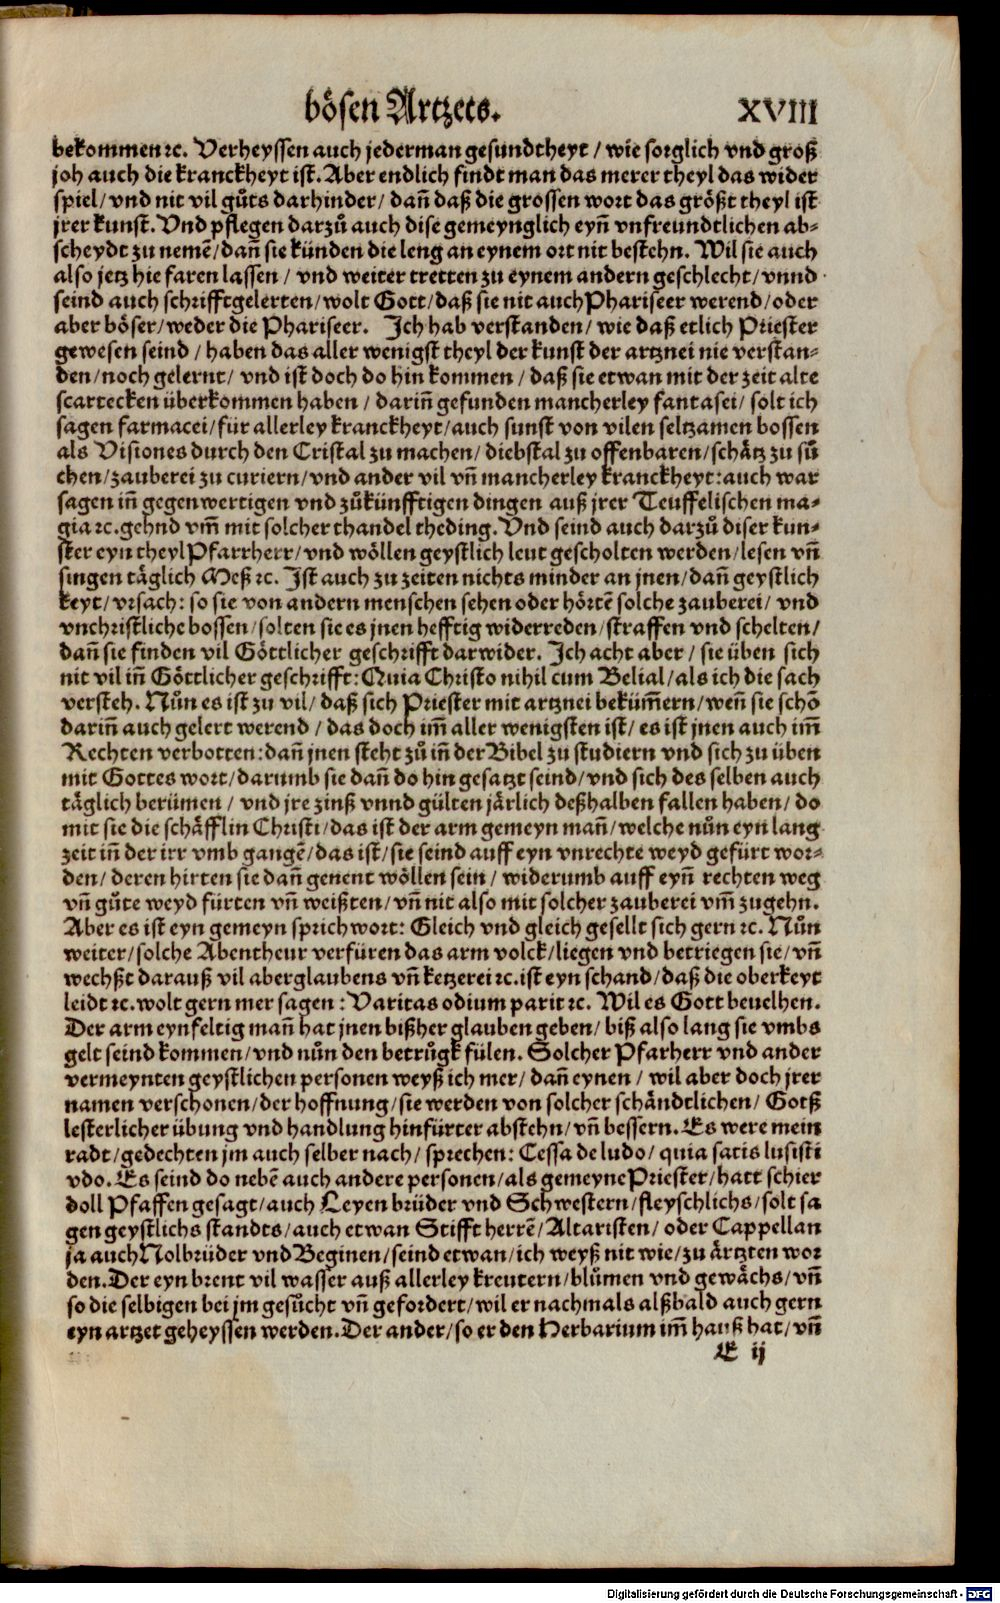 bösen Artzets. XVIII
bekommen ꝛc. Verheyssen auch jederman gesundtheyt / wie sorglich vnd groß
joh auch die kranckheyt ist. Aber endlich findt man das merer theyl das wider
spiel / vnd nit vil gůts darhinder / dañ daß die grossen wort das größt theyl ist
jrer kunst. Vnd pflegen darzů auch dise gemeynglich eyñ vnfreundtlichen ab⸗
scheydt zu nemē / dañ sie künden die leng an eynem ort nit bestehn. Wil sie auch
also jetz hie faren lassen / vnd weiter tretten zu eynem andern geschlecht / vnnd
seind auch schrifftgelerten / wolt Gott / daß sie nit auch Phariseer werend / oder
aber böser / weder die Phariseer. Ich hab verstanden / wie daß etlich Priester
gewesen seind / haben das aller wenigst theyl der kunst der artznei nie verstan⸗
den / noch gelernt / vnd ist doch do hin kommen / daß sie etwan mit der zeit alte
scartecken überkommen haben / dariñ gefunden mancherley fantasei / solt ich
sagen farmacei / für allerley kranckheyt / auch sunst von vilen seltzamen bossen
als Visiones durch den Cristal zu machen / diebstal zu offenbaren / schätz zu sů
chen / zauberei zu curiern / vnd ander vil vñ mancherley kranckheyt : auch war
sagen iñ gegenwertigen vnd zůkünfftigen dingen auß jrer Teuffelischen ma⸗
gia ꝛc. gehnd vm̃ mit solcher thandel theding. Vnd seind auch darzů diser kun⸗
ster eyn theyl Pfarrherr / vnd wöllen geystlich leut gescholten werden / lesen vñ
singen täglich Meß ꝛc. Ist auch zu zeiten nichts minder an jnen / dañ geystlich
keyt / vrsach : so sie von andern menschen sehen oder hörtē solche zauberei / vnd
vnchristliche bossen / solten sie es jnen hefftig widerreden / straffen vnd schelten /
dañ sie finden vil Göttlicher geschrifft darwider. Ich acht aber / sie üben sich
nit vil iñ Göttlicher geschrifft : Quia Christo nihil cum Belial / als ich die sach
versteh. Nůn es ist zu vil / daß sich Priester mit artznei bekům̃ern / weñ sie schō
dariñ auch gelert werend / das doch im̃ aller wenigsten ist / es ist jnen auch im̃
Rechten verbotten : dañ jnen steht zů iñ der Bibel zu studiern vnd sich zu üben
mit Gottes wort / darumb sie dañ do hin gesatzt seind / vnd sich des selben auch
täglich berümen / vnd jre zinß vnnd gülten järlich deßhalben fallen haben / do
mit sie die schäfflin Christi / das ist der arm gemeyn mañ / welche nůn eyn lang
zeit iñ der irr vmb gangē / das ist / sie seind auff eyn vnrechte weyd gefürt wor⸗
den / deren hirten sie dañ genent wöllen sein / widerumb auff eyñ rechten weg
vñ gůte weyd fürten vñ weißten / vñ nit also mit solcher zauberei vm̃ zugehn.
Aber es ist eyn gemeyn sprichwort : Gleich vnd gleich gesellt sich gern ꝛc. Nůn
weiter / solche Abentheur verfüren das arm volck / liegen vnd betriegen sie / vñ
wechßt darauß vil aberglaubens vñ ketzerei ꝛc. ist eyn schand / daß die oberkeyt
leidt ꝛc. wolt gern mer sagen : Varitas odium parit ꝛc. Wil es Gott beuelhen.
Der arm eynfeltig mañ hat jnen bißher glauben geben / biß also lang sie vmbs
gelt seind kommen / vnd nůn den betrůgk fülen. Solcher Pfarherr vnd ander
vermeynten geystlichen personen weyß ich mer / dañ eynen / wil aber doch jrer
namen verschonen / der hoffnung / sie werden von solcher schändtlichen / Gotß
lesterlicher übung vnd handlung hinfürter abstehn / vñ bessern. Es were mein
radt / gedechten jm auch selber nach / sprechen : Cessa de ludo / quia satis lusisti
vdo. Es seind do nebē auch andere personen / als gemeyne Priester / hatt schier
doll Pfaffen gesagt / auch Leyen brüder vnd Schwestern / fleyschlichs / solt sa
gen geystlichs standts / auch etwan Stifft herrē / Altaristen / oder Cappellan
ja auch Nolbrüder vnd Beginen / seind etwan / ich weyß nit wie / zu ärtzten wor
den. Der eyn brent vil wasser auß allerley kreutern / blůmen vnd gewächs / vñ
so die selbigen bei jm gesůcht vñ gefordert / wil er nachmals alßbald auch gern
eyn artzet geheyssen werden. Der ander / so er den Herbarium im̃ hauß hat / vñ
E ij
Digitalisierung gefördert durch die Deutsche Forschungsgemeinschaft - DFG